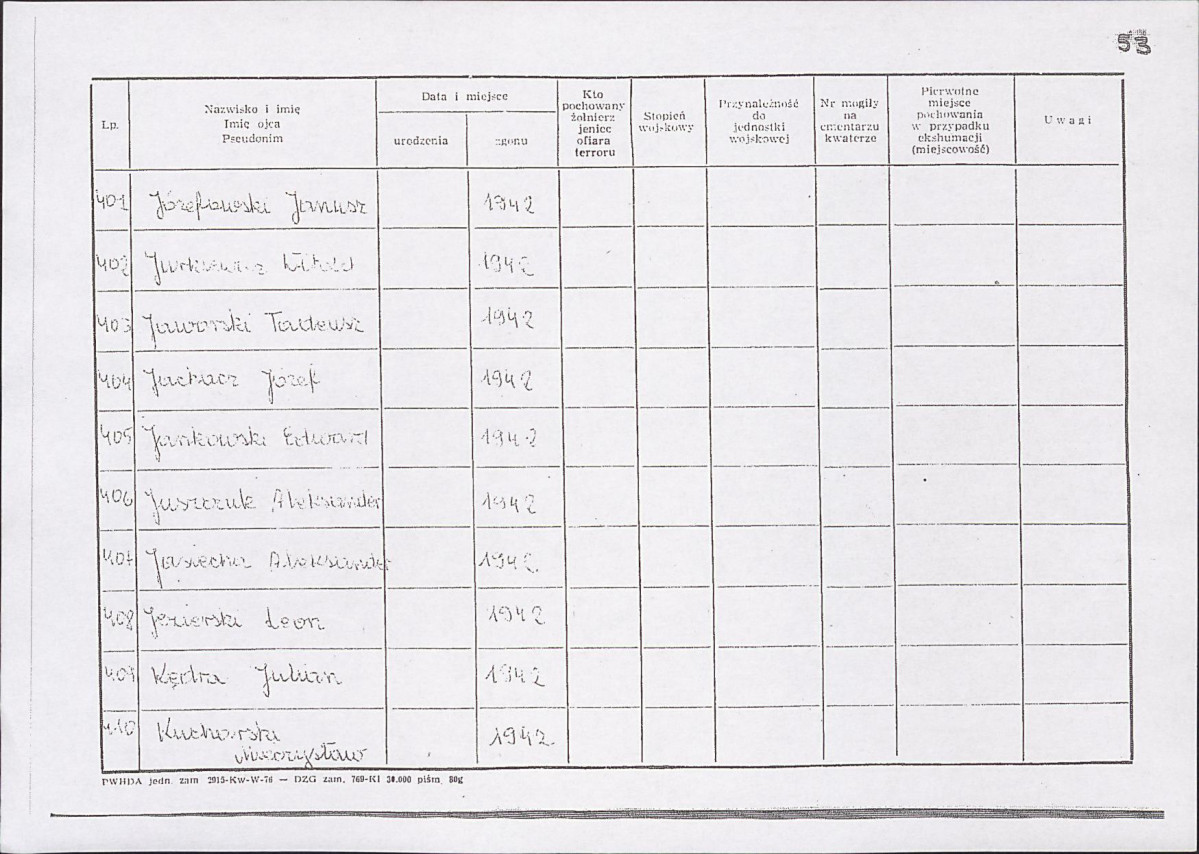 53
Lp.
Nazwisko i imię
Imię ojca
Pseudonim
Data i miejsce
urodzenia
zgonu
Kto
pochowany
żołnierz
jeniec
ofiara
terroru
Stopień
wojskowy
Przynależność
do
jednostki
wojskowej
Nr mogiły
na
cmentarzu
kwaterze
Pierwotne
miejsce
pochowania
w przypadku
ekshumacji
(miejscowość)
Uwagi
401 Józefowski Janusz 1942
402 Jurkiewicz Witold 1942
403 Jaworski Tadeusz 1942
404 Jachacz Józef 1942
405 Jankowski Edward 1942
406 Juszczuk Aleksander 1942
407 Aleksander 1942
408 Jezierski Leon 1942
409 Kędra Julian 1942
410 Kucharski 1942
Mieczysław
PWHDA jedn. zam 2915-Kw-W-76 — DZG zam. 769-KI 30.000 piśm. 80g